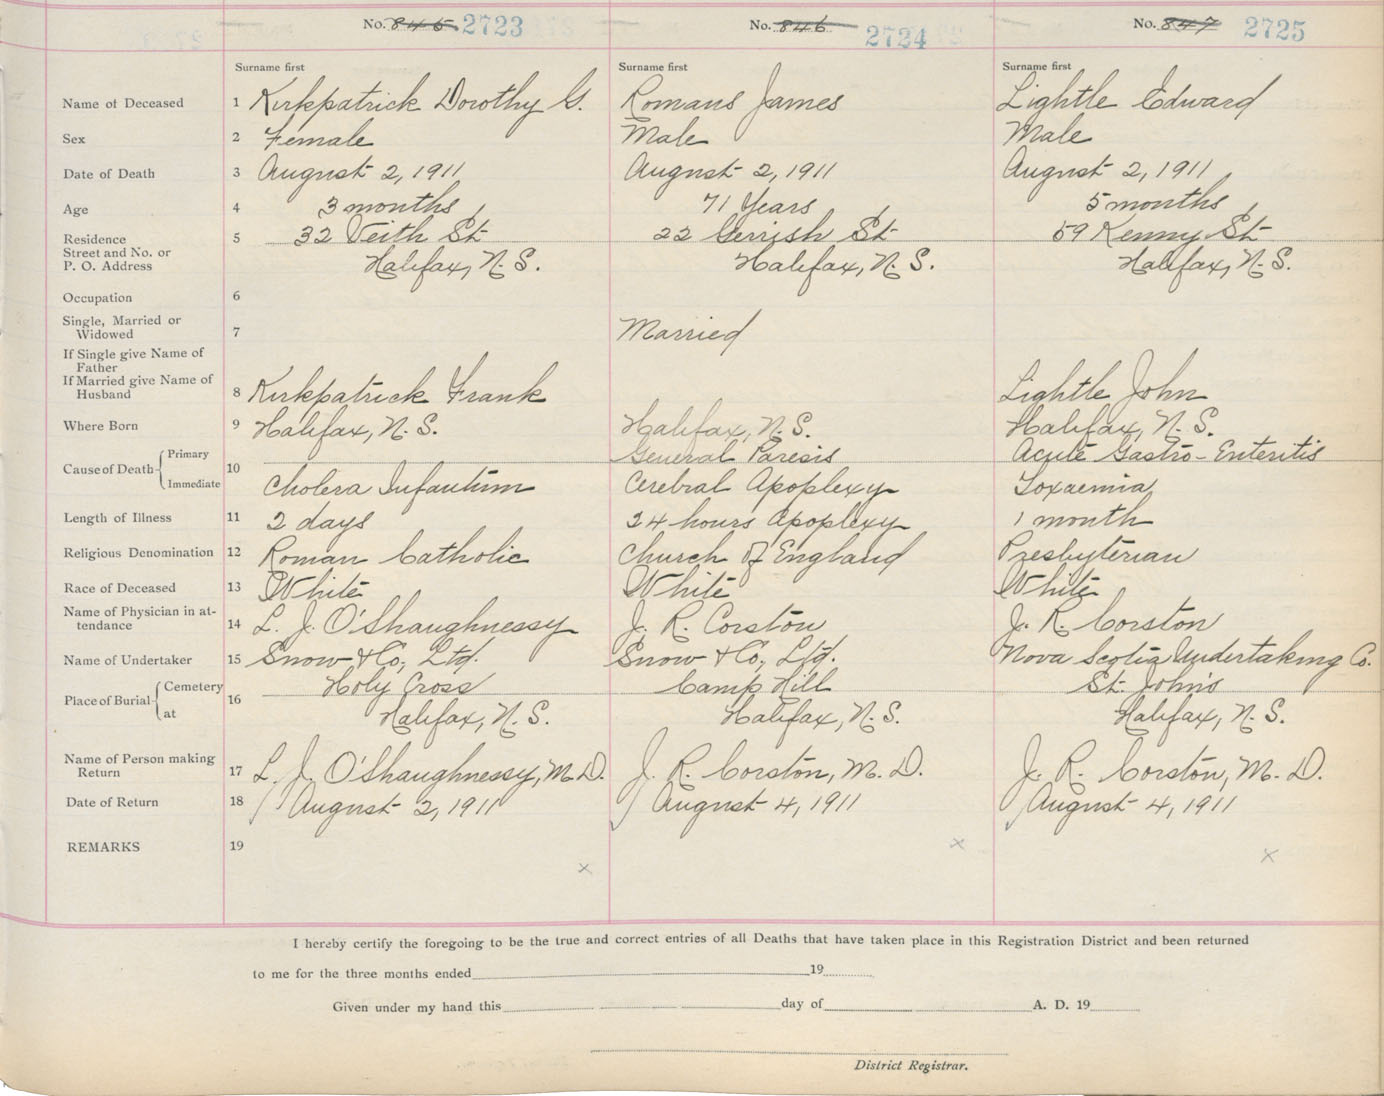 No. 845 2723 No. 846 2724 No. 847 2725
Surname first Surname first Surname first
Name of Deceased 1 Kirkpatrick Dorothy G. Romans James Lightle Edward
Sex 2 Female Male Male
Date of Death 3 August 2, 1911 August 2, 1911 August 2, 1911
Age 4 3 months 71 Years 5 months
Residence 5 32 Veith St 22 Gerrish St 59 Kenny St
Street and No. or
P. O. Address Halifax, N.S. Halifax, N.S. Halifax, N.S.
Occupation 6
Single, Married or
Widowed 7 Married
If Single give Name of
Father
If Married give Name of
Husband 8 Kirkpatrick Frank Lightle John
Where Born 9 Halifax, N.S. Halifax, N.S. Halifax, N.S.
Cause of Death 10 Primary General Paresis Acute Gastro-Enteritis
Immediate Cholera Infantum Cerebral Apoplexy Toxaemia
Length of Illness 11 2 days 24 hours Apoplexy 1 month
Religious Denomination 12 Roman Catholic Church of England Presbyterian
Race of Deceased 13 White White White
Name of Physician in at-
tendance 14 L. J. O'Shaughnessy J. R. Corston J. R. Corston
Name of Undertaker 15 Snow & Co, Ltd. Snow & Co, Ltd. Nova Scotia Undertaking Co.
Place of Burial 16 Cemetery Holy Cross Camp Hill St. John's
at Halifax, N.S. Halifax, N.S. Halifax, N.S.
Name of Person making
Return 17 L. J. O'Shaughnessy, M.D. J. R. Corston, M.D. J. R. Corston, M.D.
Date of Return 18 August 2, 1911 August 4, 1911 August 4, 1911
REMARKS 19
x x x
I hereby certify the foregoing to be the true and correct entries of all Deaths that have taken place in this Registration District and been returned
to me for the three months ended 19
Given under my hand this day of A. D. 19
District Registrar.